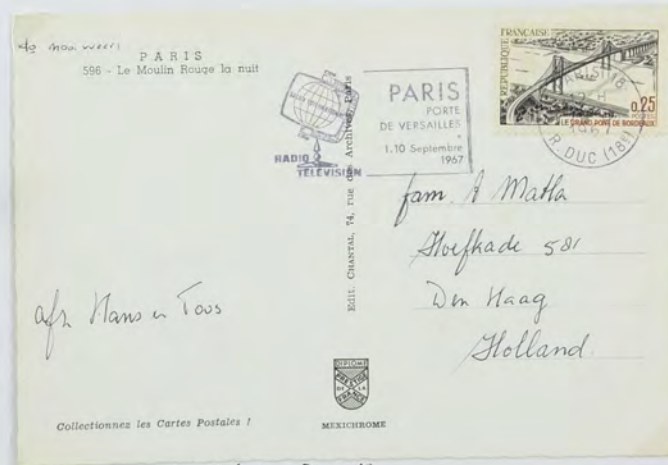 PARIS
596 - Le Moulin Rouge la nuit
RADIO
TÉLÉVISION
PARIS
PORTE
DE VERSAILLES
1.10 Septembre
1967
RÉPUBLIQUE FRANÇAISE
0,25
POSTES
LE GRAND PONT DE BORDEAUX
R. DUC (18E)
Edit. CHANTAL, 74, rue des Archives, Paris
fam. A Matla
Hoefkade 581
Den Haag
Holland.
afz Hans en Toos
DIPLOME
PRESTIGE
DE LA
FRANCE
Collectionnez les Cartes Postales !
MEXICHROME